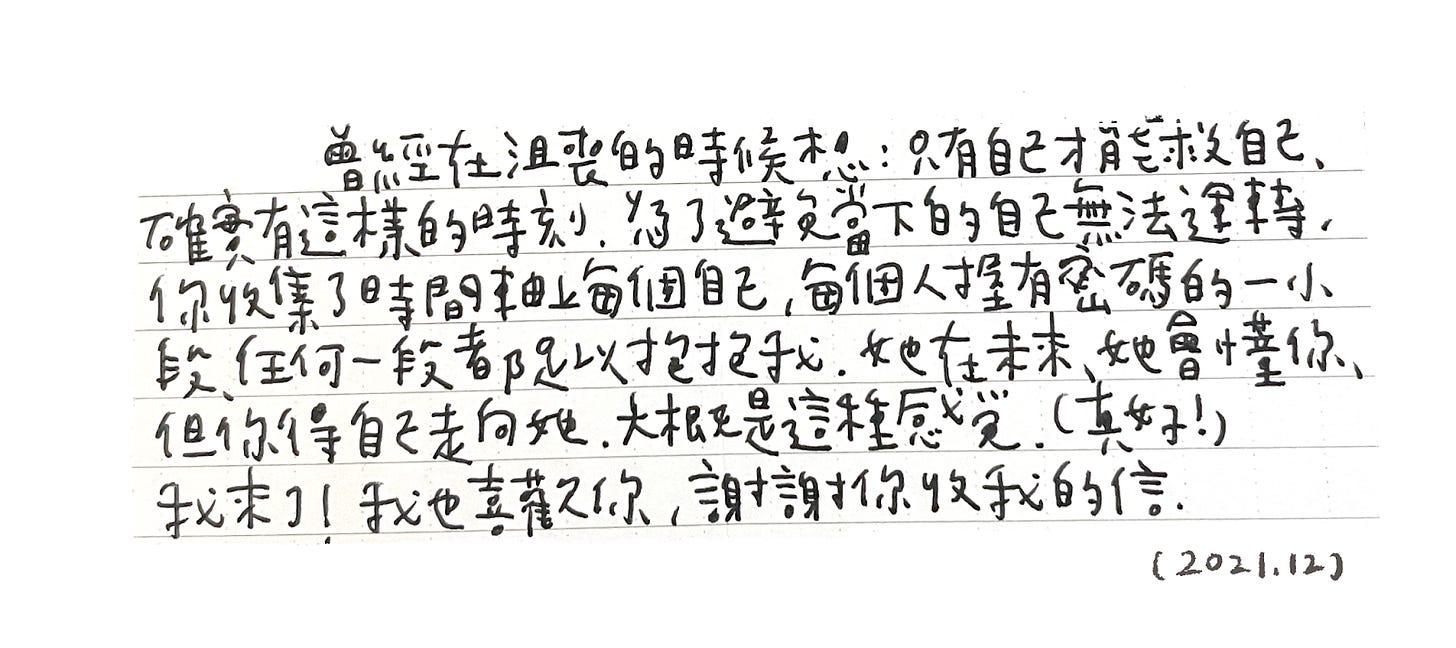 曾經在沮喪的時候想：只有自己才能救自己、
確實有這樣的時刻．為了避免當下的自己無法運轉，
你收集了時間軸上每個自己，每個人握有密碼的一小
段、任何一段都足以抱抱我．她在未來、她會懂你、
但你得自己走向她．大概是這種感覚．（真好！）
我來了！我也喜歡你，謝謝你收我的信．
（2021.12）